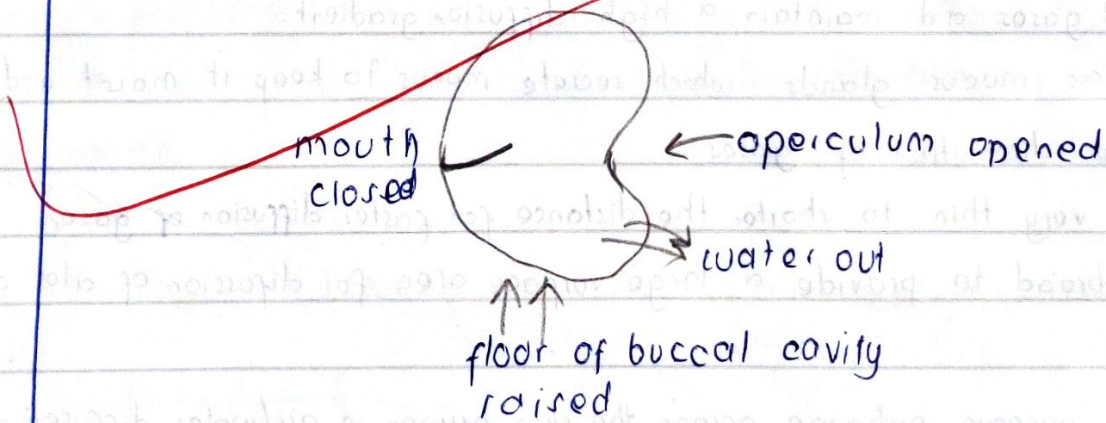 mouth
closed
operculum opened
water out
floor of buccal cavity
raised